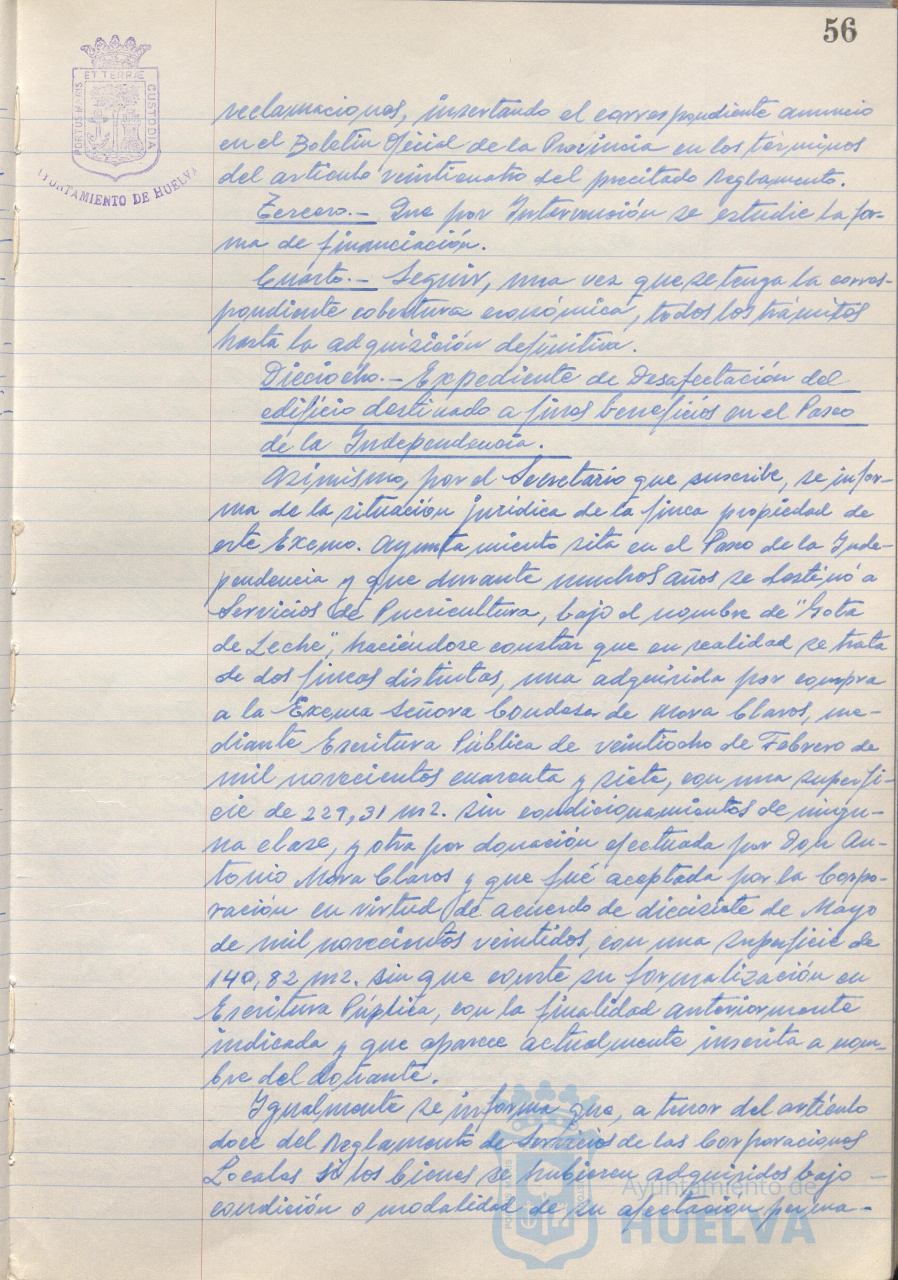 56
PORTUS MARIS ET TERRÆ CUSTODIA
AYUNTAMIENTO DE HUELVA
reclamaciones, insertando el correspondiente anuncio
en el Boletín Oficial de la Provincia en los términos
del artículo veinticuatro del precitado Reglamento.
Tercero.- Que por Intervención se estudie la for-
ma de financiación.
Cuarto.- Seguir, una vez que se tenga la corres-
pondiente cobertura económica, todos los trámites
hasta la adquisición definitiva.
Dieciocho.- Expediente de Desafectación del
edificio destinado a fines beneficios en el Paseo
de la Independencia.
Asimismo, por el Secretario que suscribe, se infor-
ma de la situación jurídica de la finca propiedad de
este Excmo. Ayuntamiento sita en el Paseo de la Inde-
pendencia y que durante muchos años se destinó a
Servicios de Puericultura, bajo el nombre de "Gota
de Leche", haciéndose constar que en realidad se trata
de dos fincas distintas, una adquirida por compra
a la Excma Señora Condesa de Mora Claros, me-
diante Escritura Pública de veintiocho de Febrero de
mil novecientos cuarenta y siete, con una superfi-
cie de 229,31 m2. sin condicionamientos de ningu-
na clase, y otra por donación efectuada por Don An-
tonio Mora Claros y que fué aceptada por la Corpo-
ración en virtud de acuerdo de diecisiete de Mayo
de mil novecientos veintidos, con una superficie de
140,82 m2. sin que conste su formalización en
Escritura Pública, con la finalidad anteriormente
indicada y que aparece actualmente inscrita a nom-
bre del donante.
Igualmente se informa que, a tenor del artículo
doce del Reglamento de Servicios de las Corporaciones
Locales si los bienes se hubieren adquiridos bajo
condición o modalidad de su afectación perma-
Ayuntamiento de
HUELVA